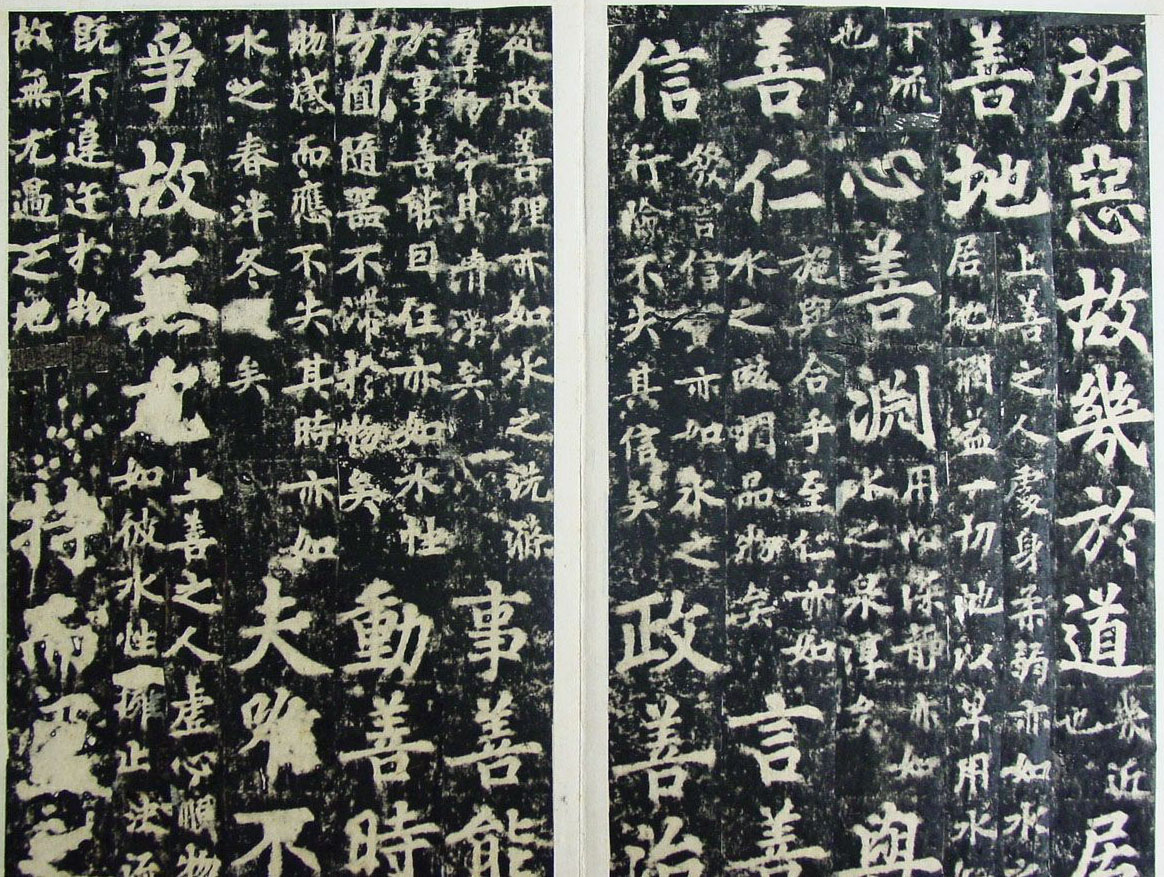 所惡故幾於道
幾近
也
居
善地
上善之人處身柔弱亦如水之
居地潤益一切地以卑用水
下流
也
心善淵
用心深靜亦如
水之渟矣
與
善仁
施與合乎至仁亦如
水之滋潤品物矣
言善
信
發言信實亦如水之
行險不失其信矣
政善治
從政善理亦如水之洗滌
群物令其清淨矣
事善能
於事善能因任亦如水性
方圓隨器不滯於物矣
動善時
物感而應不失其時亦如
水之春泮冬矣
夫唯不
爭故無尤
上善之人虛心順物
如彼水性壅止決流
既不違迕於物
故無尤過之地
持而盈之